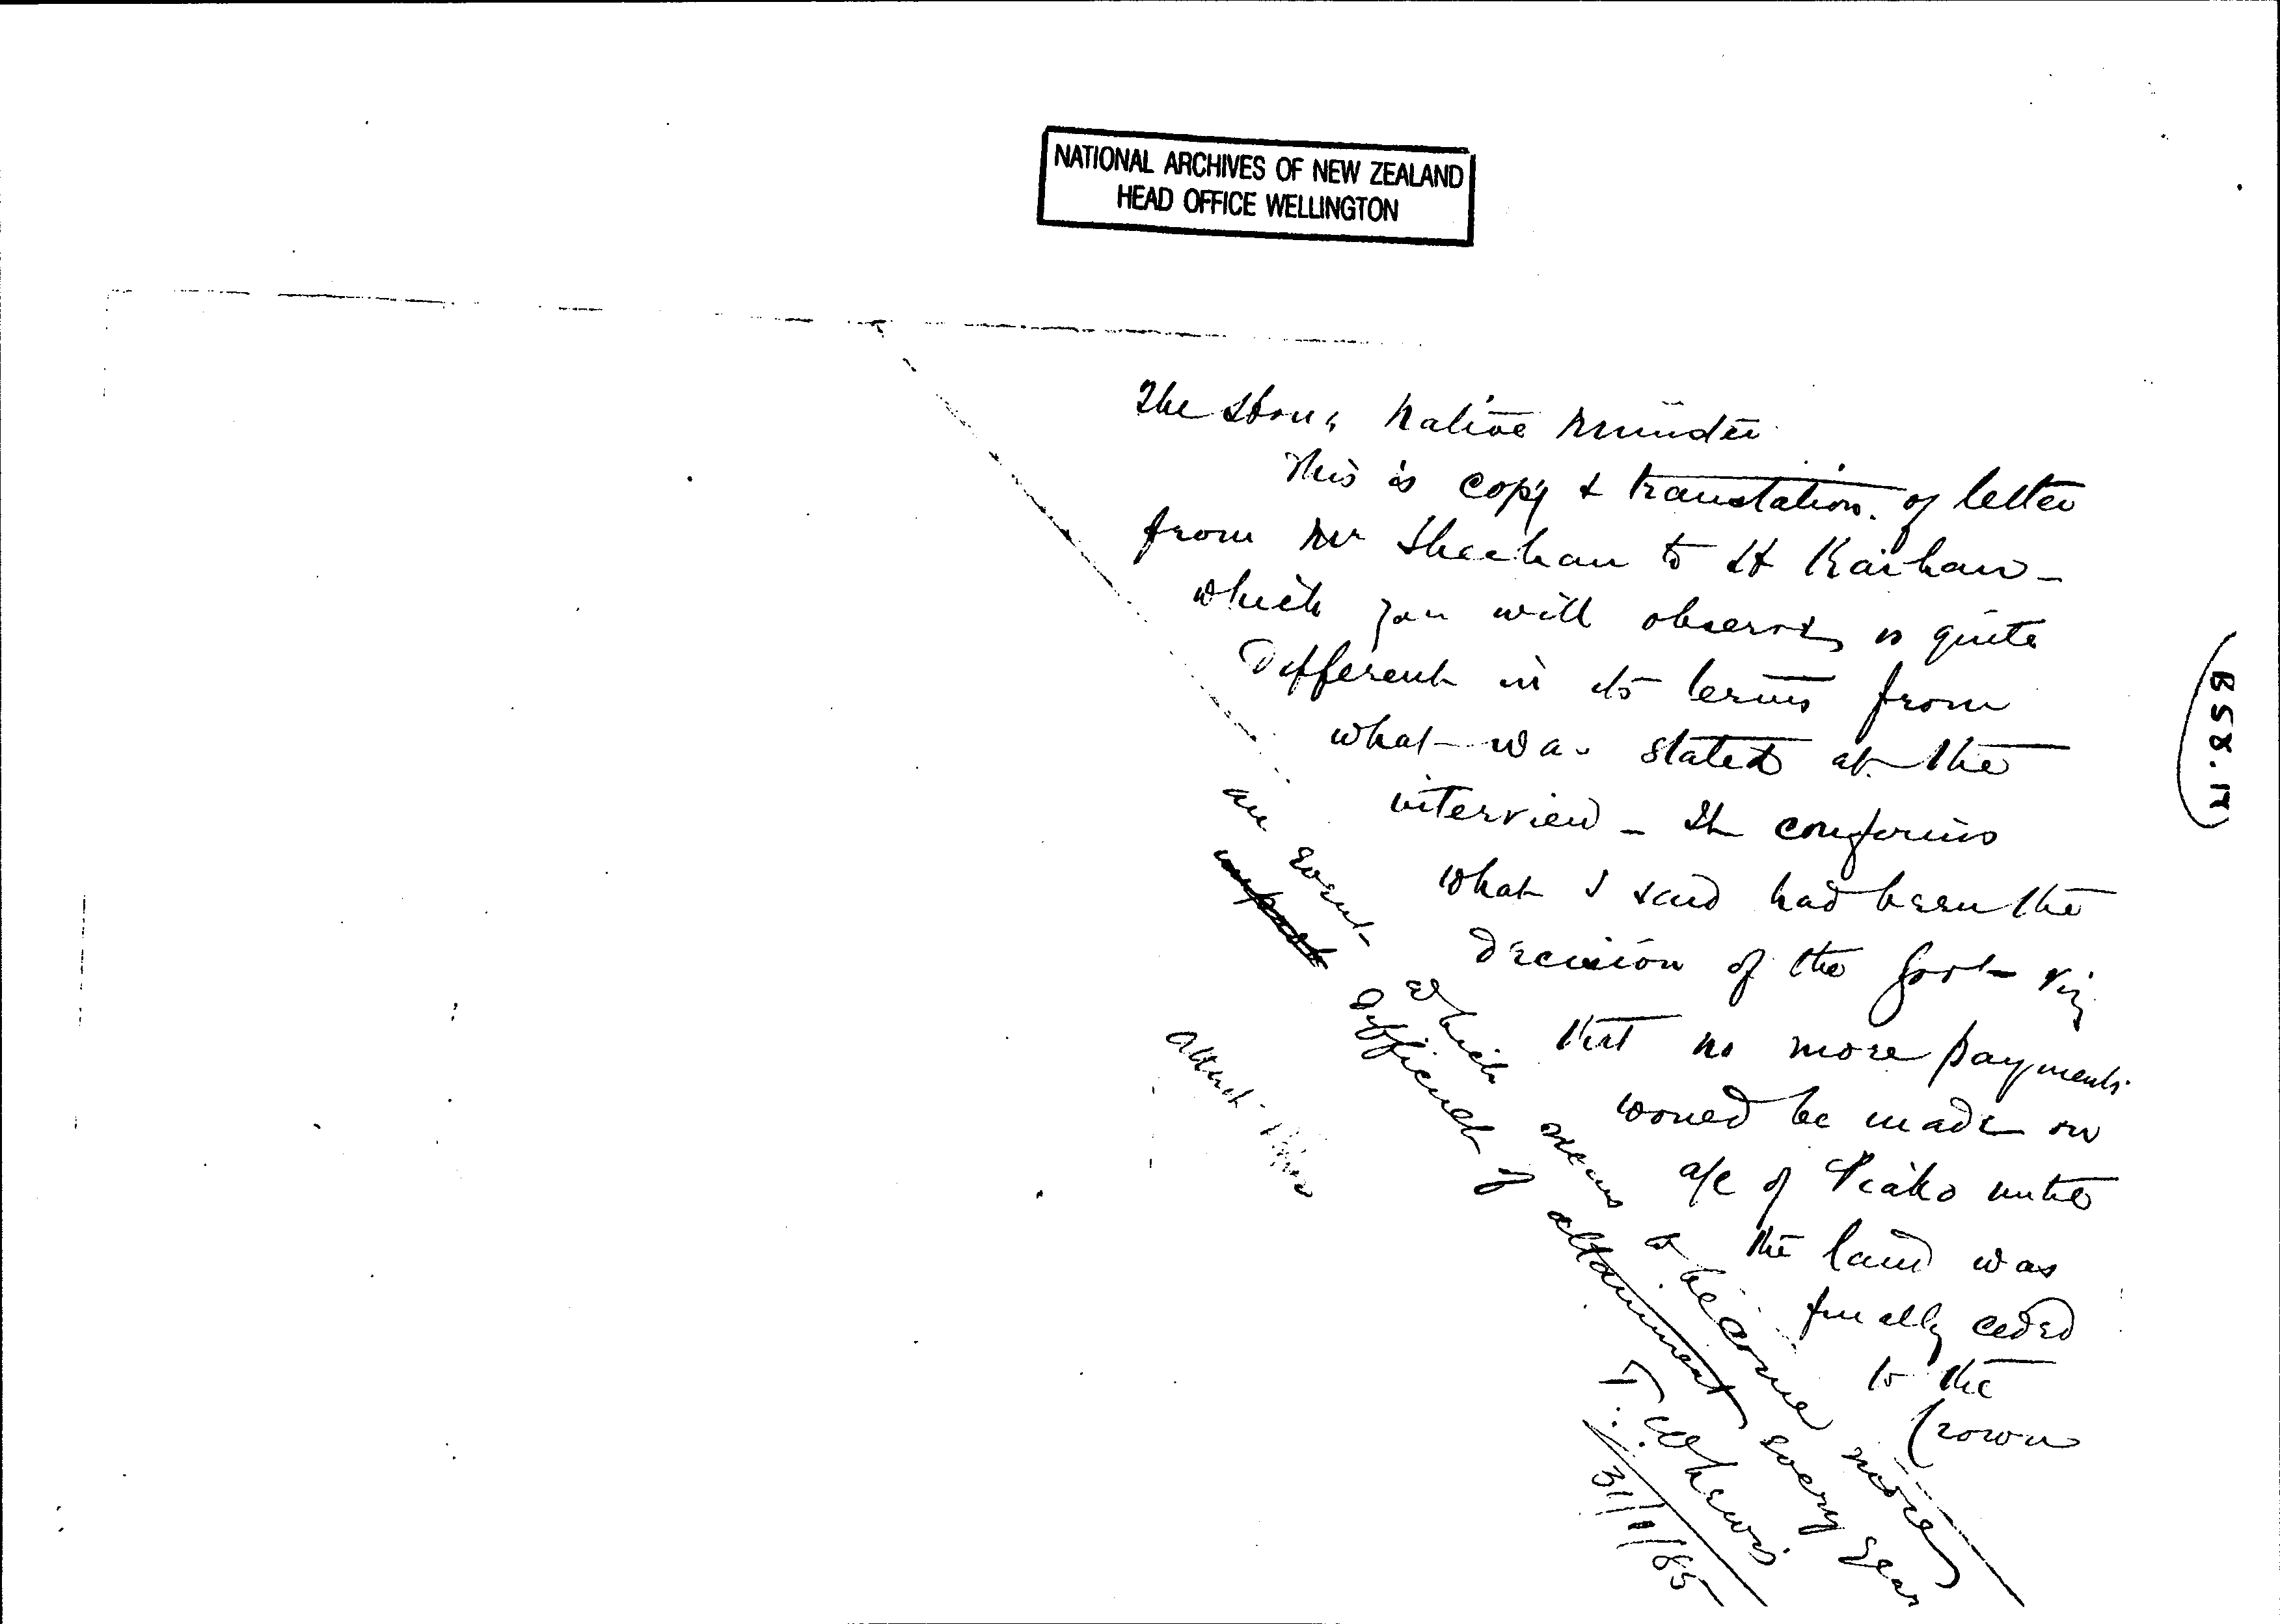 NATIONAL ARCHIVES OF NEW ZEALAND
HEAD OFFICE WELLINGTON
The Hon. Native Minister
This is copy & translation of letter
from Mr Sheehan to H Kaihau -
which you will observe is quite
different in its terms from
what was stated at the
interview - It confirms
what I said had been the
decision of the Govt viz
that no more payments
would be made on
a/c of Piako until
the land was
finally ceded
to the
Crown
an event which seems to become more
difficult of attainment every year
T. W. Lewis
31/1/85
(B52.17